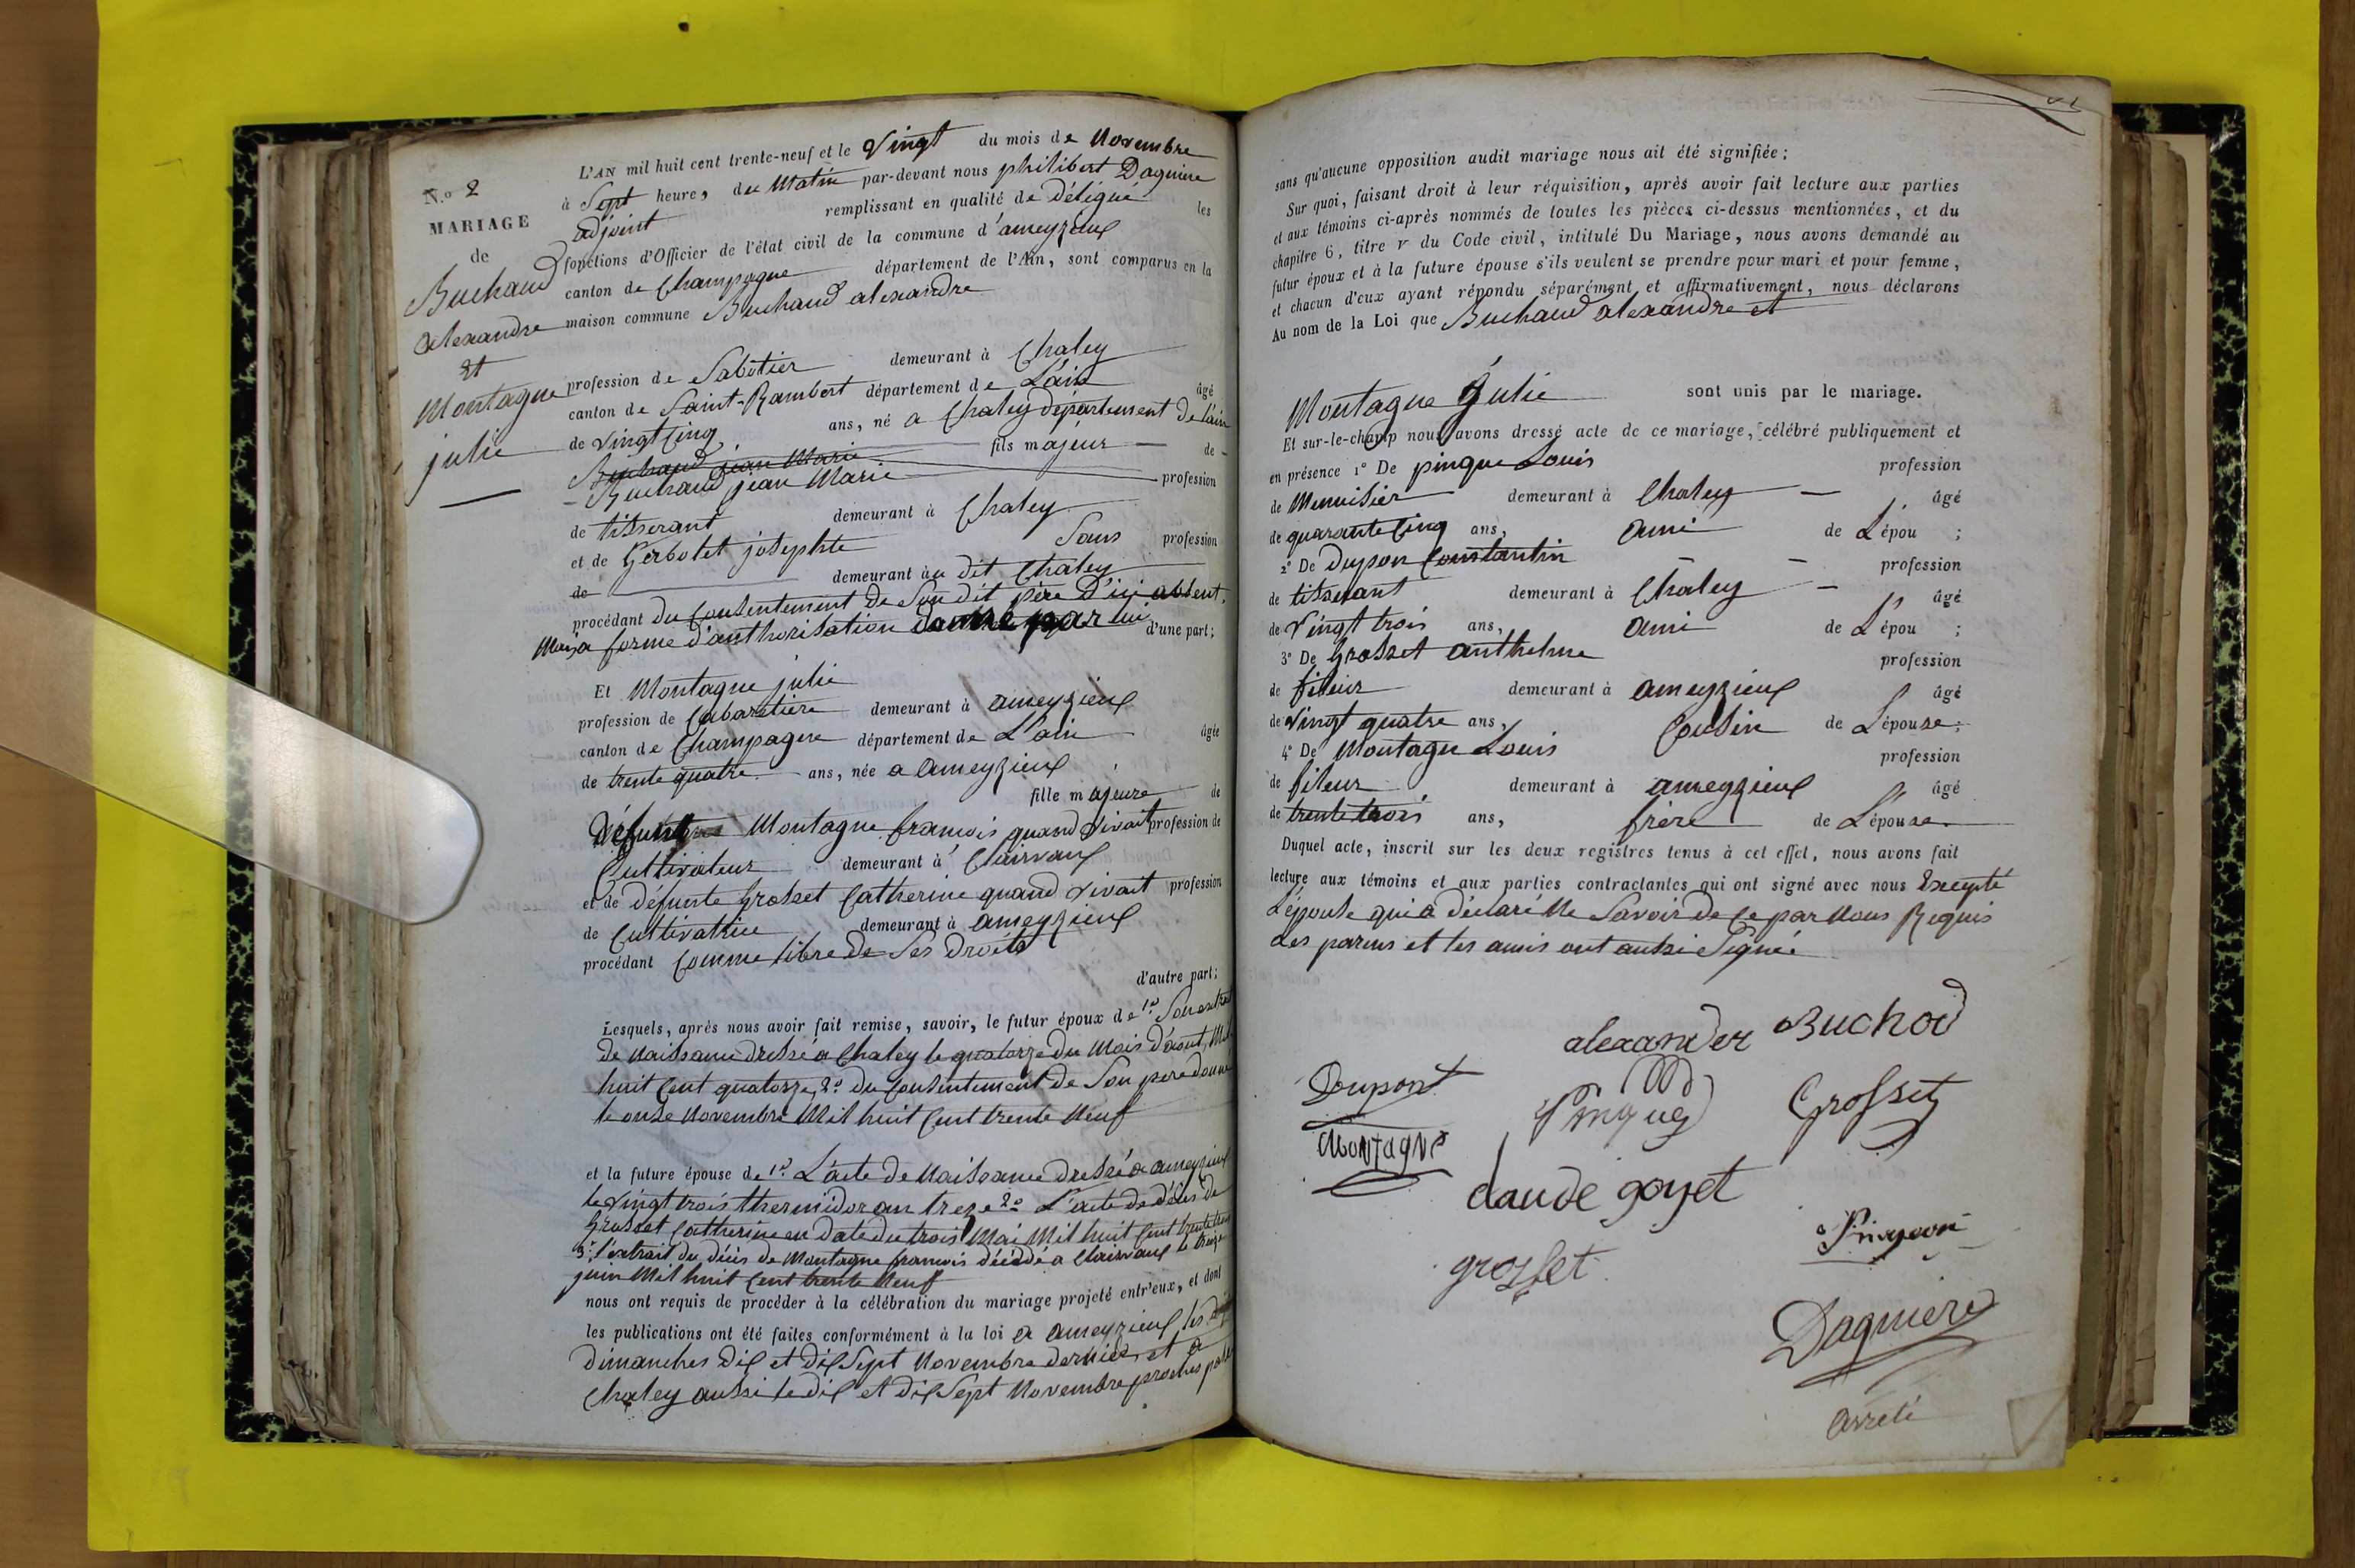 N.o 2
MARIAGE
de
Buchaud
alexandre
et
Montagne
julie
L'AN mil huit cent trente-neuf et le Vingt du mois de Novembre
à Sept heures du Matin par-devant nous philibert Dagniere
adjoint remplissant en qualité de Délégué les
fonctions d'Officier de l'état civil de la commune d'ameyzieux
canton de Champagne département de l'Ain, sont comparus en la
maison commune Buchaud alexandre
profession de Sabotier demeurant à Chaley
canton de Saint-Rambert département de L'ain âgé
de Vingt Cinq ans, né a Chaley département de l'ain
Buchaud jean Marie fils majeur de
Buchaud jean Marie profession
de tisserant demeurant à Chaley
et de Gerbotet josephte Sans profession
de demeurant au dit Chaley
procédant du Consentement de Son dit père D'ici absent,
Mais a forme d'authorisation donné par lui d'une part;
Et Montagne julie
profession de Cabaretière demeurant à ameyzieux
canton de Champagne département de L'ain âgée
de trente quatre ans, née a ameyzieux
fille majeure de
Défunt Montagne francois quand vivait profession de
Cultivateur demeurant à Clairvaux
et de défunte Grosset Catherine quand vivait profession
de Cultivatrice demeurant à ameyzieux
procédant Comme libre de Ses Droits
d'autre part;
Lesquels, après nous avoir fait remise, savoir, le futur époux de 1.o Son extrait
de Naissance dressé a Chaley le quatorze du Mois d'aout, Mil
huit Cent quatorze, 2.o du Consentement de Son pere donné
le onse Novembre Mil huit Cent trente Neuf
et la future épouse de 1.o L'acte de Naissance dressé a ameyzieux
le Vingt trois thermidor an treze 2.o L'acte de décés de
Grosset Catherine en date du trois Mai Mil huit Cent trente trois
3.o l'extrait du décès de Montagne francois décédé a Clairvaux le treize
juin Mil huit Cent trente Neuf
nous ont requis de procéder à la célébration du mariage projeté entr'eux, et dont
les publications ont été faites conformément à la loi a ameyzieux les
Dimanches Dix et Dix Sept Novembre dernier et a
Chaley aussi le dix et dix Sept Novembre proches
sans qu'aucune opposition audit mariage nous ait été signifiée;
Sur quoi, faisant droit à leur réquisition, après avoir fait lecture aux parties
et aux témoins ci-après nommés de toutes les pièces ci-dessus mentionnées, et du
chapitre 6, titre v du Code civil, intitulé Du Mariage, nous avons demandé au
futur époux et à la future épouse s'ils veulent se prendre pour mari et pour femme,
et chacun d'eux ayant répondu séparément et affirmativement, nous déclarons
Au nom de la Loi que Buchaud alexandre et
Montagne Julie sont unis par le mariage.
Et sur-le-champ nous avons dressé acte de ce mariage, célébré publiquement et
en présence 1° De pingue Louis profession
de Menuisier demeurant à Chaley âgé
de quarante Cinq ans, ami de L'épou ;
2° De Dupon Constantin profession
de tisserant demeurant à Chaley âgé
de Vingt trois ans, ami de L'épou ;
3° De Grosset anthelme profession
de fileur demeurant à ameyzieux âgé
de Vingt quatre ans, Cousin de L'épouse;
4° De Montagne Louis profession
de fileur demeurant à ameyzieux âgé
de trente trois ans, frère de L'épouse.
Duquel acte, inscrit sur les deux registres tenus à cet effet, nous avons fait
lecture aux témoins et aux parties contractantes qui ont signé avec nous Excepté
L'épouse qui a déclaré Ne Savoir de Ce par Nous Requis
Les parens et les amis ont aussi Signé
alexander Buchod
Dupont
Pingue
Grosset
Montagne
claude goyet
Pingeon
grosset
Dagniere
arreté